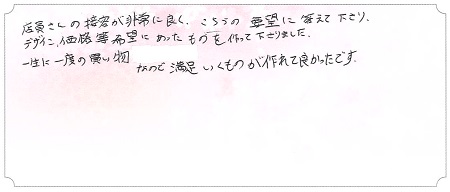 店員さんの接客が非常に良く、こちらの要望に答えて下さり、
デザイン、価格等希望にあったものを作って下さりました。
一生に一度の買い物
なので満足いくものが作れて良かったです。